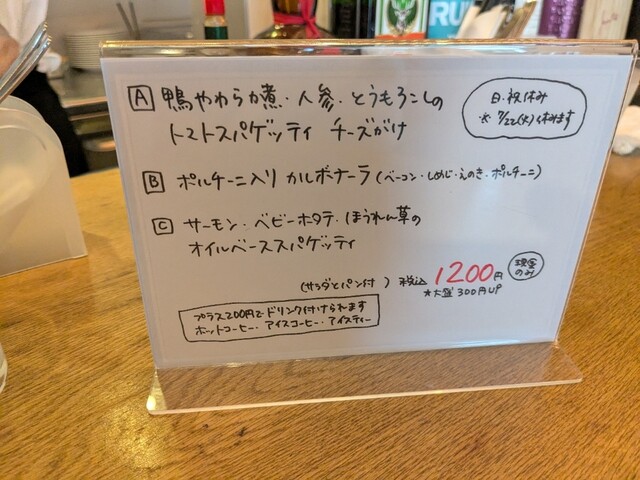 A 鴨やわらか煮・人参・とうもろこしの
トマトスパゲッティ チーズがけ
日・祝休み
※ 7/22(火)休みます
B ポルチーニ入り カルボナーラ(ベーコン・しめじ・えのき・ポルチーニ)
C サーモン・ベビーホタテ・ほうれん草の
オイルベーススパゲッティ
(サラダとパン付) 税込 1200円
現金のみ
★大盛 300円UP
プラス200円でドリンク付けられます
ホットコーヒー・アイスコーヒー・アイスティー
RU